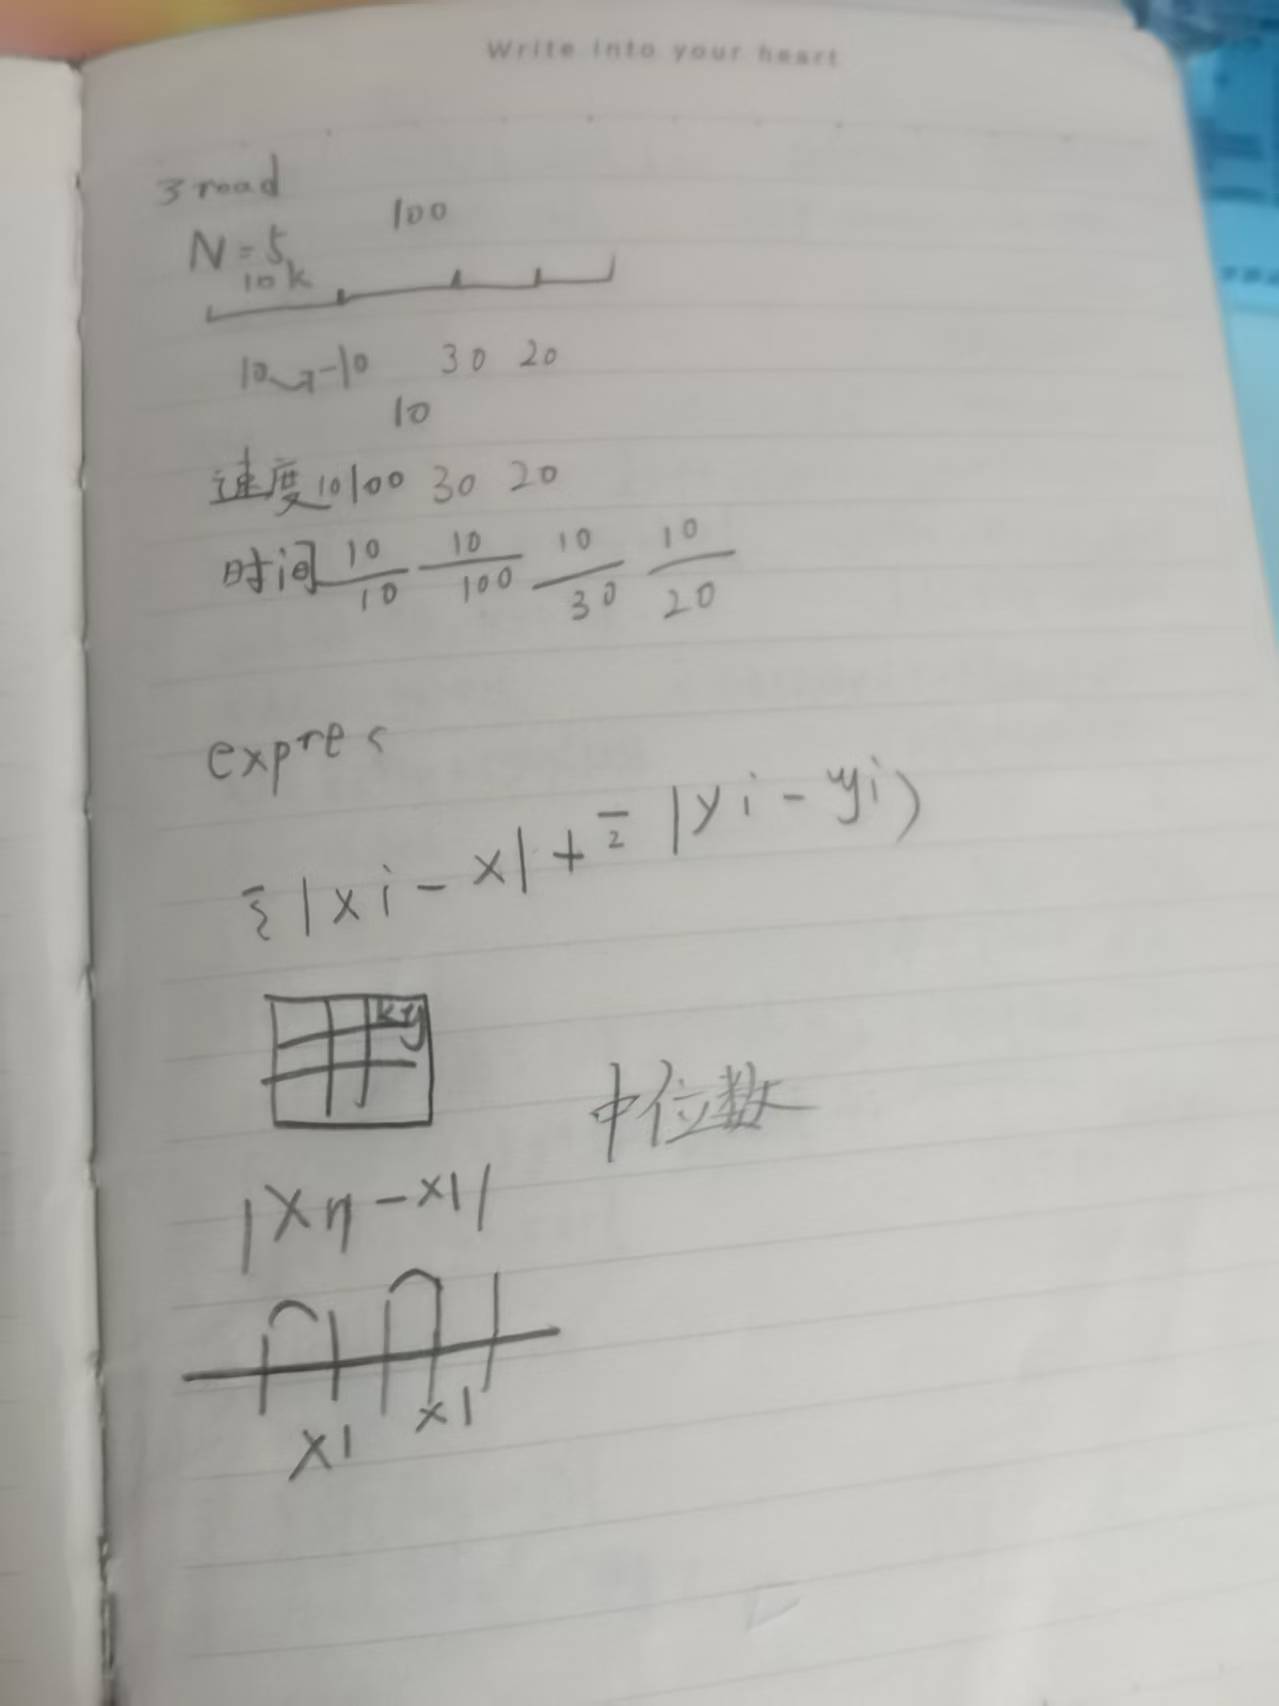 Write into your heart
3 road
100
N=5
10k
10 -10 30 20
10
速度10 100 30 20
时间 10/10 10/100 10/30 10/20
expre
|xi - x| + |yi - yi)
xy
中位数
|Xn - x1|
x1 x1